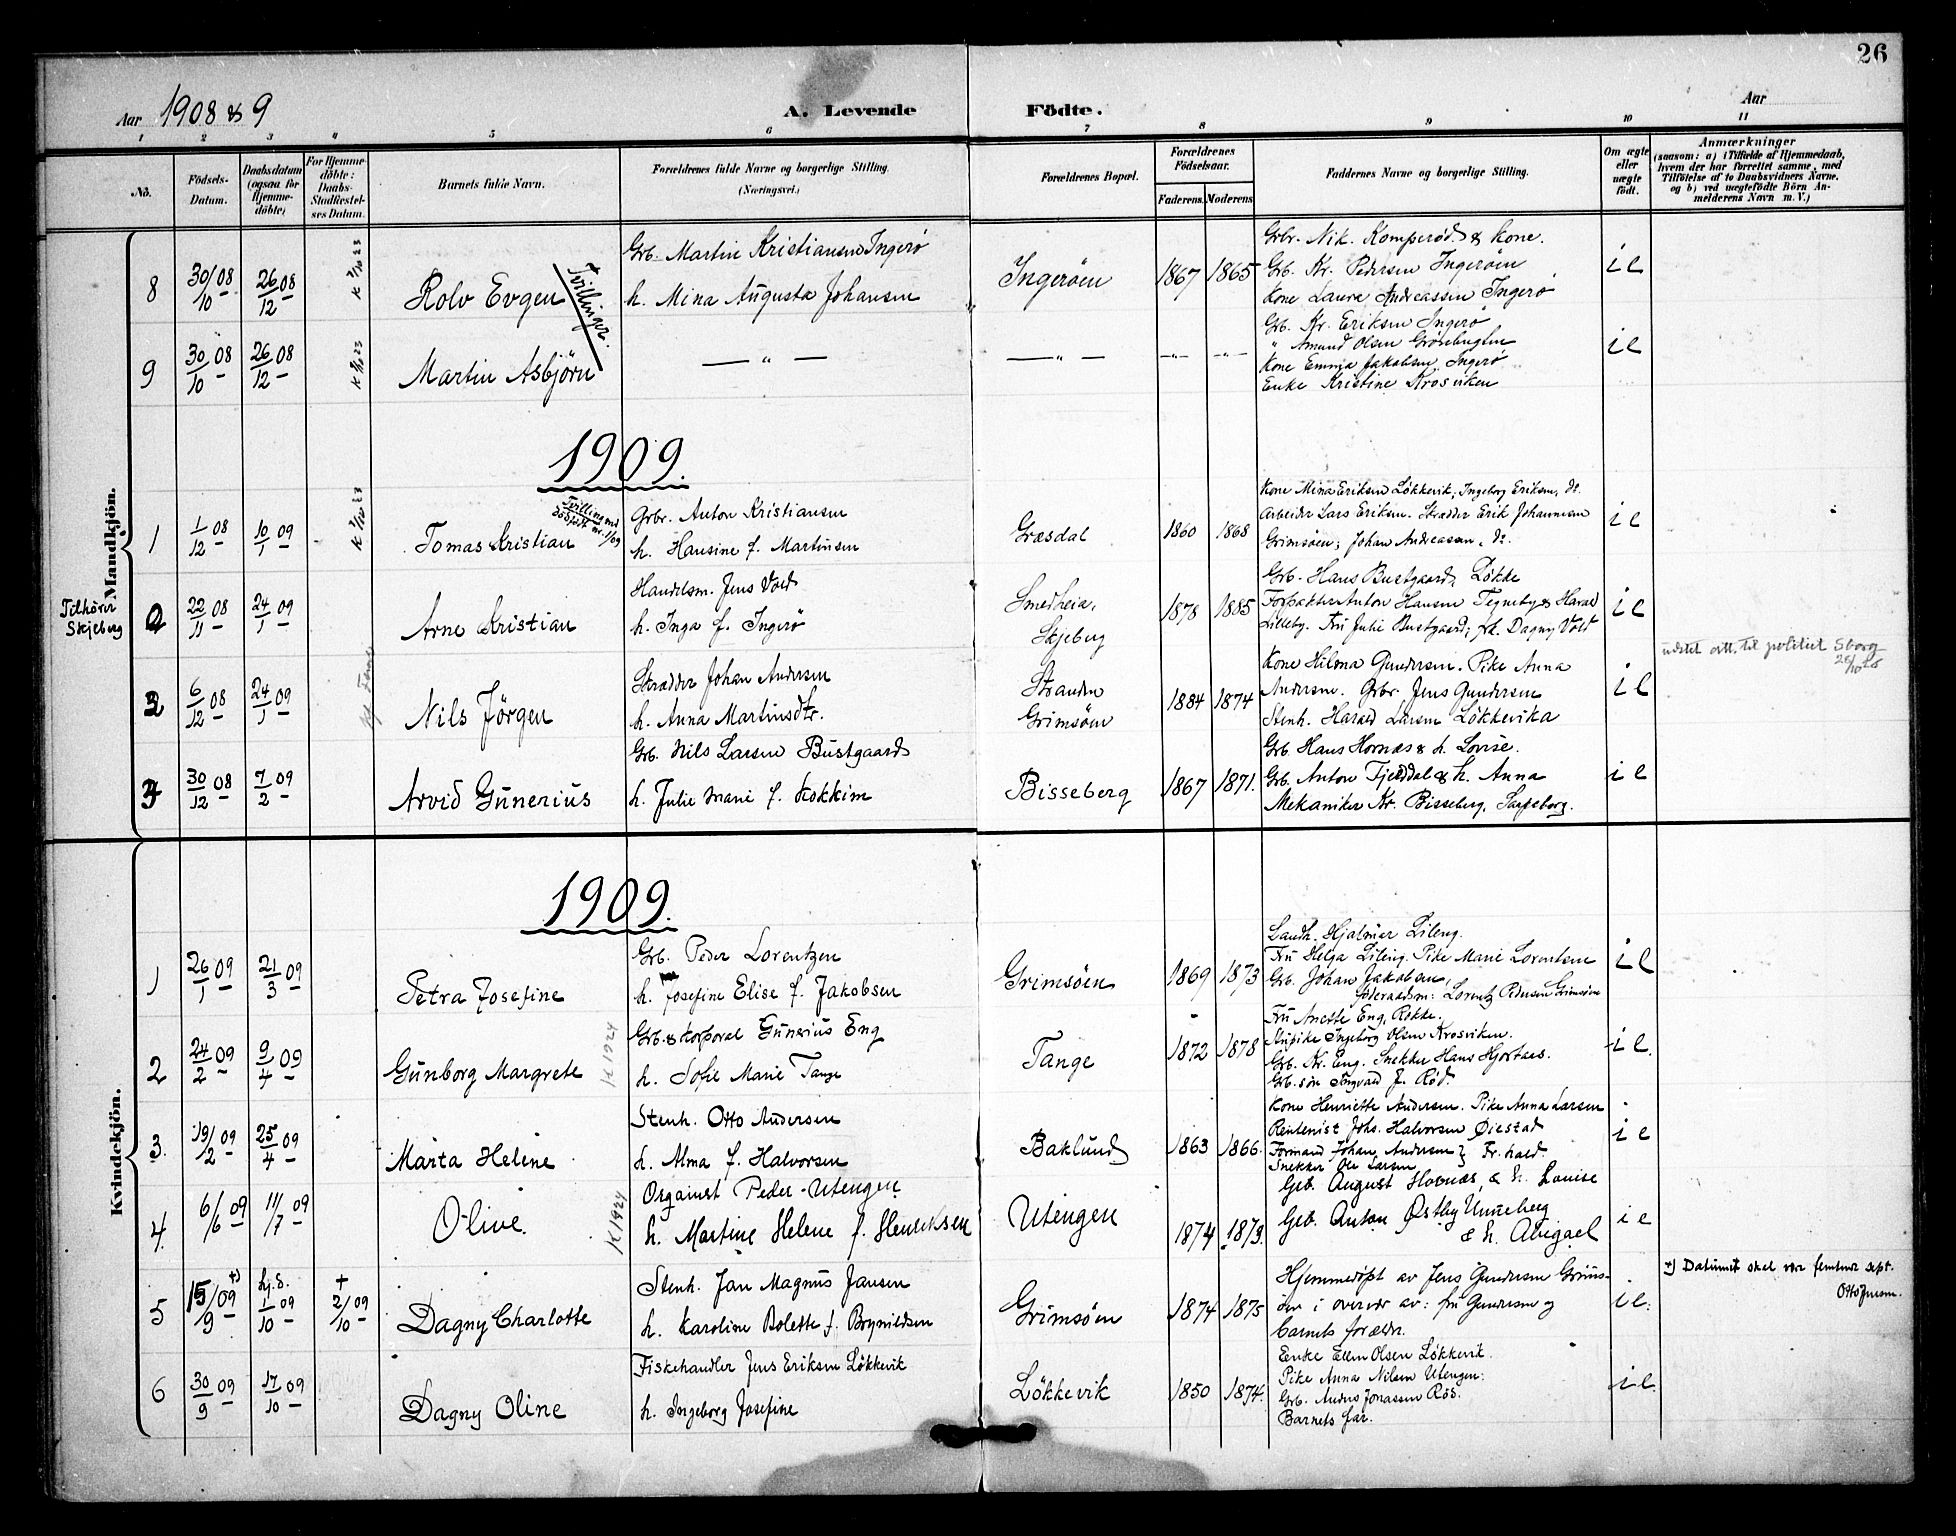 26
Aar 1908 & 9
A. Levende Födte.
Aar
1 2 3 4 5 6 7 8 9 10 11
No.
Födsels-Datum.
Daabsdatum (ogsaa for Hjemmedöbte)
For Hjemmedöbte: Daabs-Stadfestelses Datum.
Barnets fulde Navn.
Forældrenes fulde Navne og borgerlige Stilling. (Næringsvei.)
Forældrenes Bopæl.
Forældrenes Födselsaar.
Faderens. Moderens
Faddernes Navne og borgerlige Stilling.
Om ægte eller uægte födt.
Anmærkninger
(saasom: a) i Tilfælde af Hjemmedaab, hvem der har forrettet samme, med Tilföielse af to Daabsvidners Navne. og b) ved uægtefödte Börn Anmelderens Navn m. V.)
Mandkjön.
8 30/10 08 26/12 08 K 7/10 23
Rolv Evgen
Tvillinger.
Grb. Martin Kristiansen Ingerø
h. Mina Augusta Johansen
Ingerøen 1867 1865
Grbr. Nik. Komperød & kone.
Grb. Kr. Pedersen Ingerøen
Kone Laura Andreassen Ingerø
i e
9 30/10 08 26/12 08
Martin Asbjörn
— „ —
— „ — -„- -„-
Grb. Kr. Eriksen Ingerø
„ Amund Olsen Grönebugten
Kone Emma Jakobsen, Ingerø
Enke Kristine Krosviken
i e
1909.
1 1/12 08 10/1 09 K 7/10 23
Tomas Kristian
Grbr. Anton Kristiansen
h. Hansine f. Martinsen
Græsdal 1860 1868
Kone Mina Eriksen Løkkevik, Ingeborg Eriksen, do.
Arbeider Lars Eriksen. Skrædder Erik Johannesen
Grimsøen; Johan Andreassen, do.
i e
Tilhører Skjeberg
2 22/11 08 24/1 09
Arne Kristian
Handelsm. Jens Vold
h. Inga f. Ingerø
Smedheia, Skjeberg 1878 1885
Grb. Hans Bustgaard, Løkke
Forpakter Anton Hansen Tegneby & Harald
Lilleby. Fru Julie Bustgaard; frk. Dagny Vold
i e
3 6/12 08 24/1 09
Nils Jörgen
Skrædder Johan Andersen
h. Anna Martinsdtr.
Stranden Grimsøen 1884 1874
Kone Hilma Gundersen. Pike Anna
Andersen. Grbr. Jens Gundersen
Stenh. Harald Larsen Løkkevika
i e
udstet att. til politiet Sborg
4 30/12 08 7/2 09
Arvid Gunerius
Grb. Nils Larsen Bustgaard
h. Julie Marie f. Kokkim
Bisseberg 1867 1871.
Grb. Hans Hornæs & h. Lovise.
Grb. Anton Fjelddal & h. Anna
Mekaniker Kr. Bisseberg, Sarpsborg.
i e
Kvindekjön.
1909.
1 26/1 09 21/3 09
Petra Josefine
Grb. Peder Lorentzen
h. Josefine Elise f. Jakobsen
Grimsøen 1869 1873
Landh. Hjalmar Lileng.
Fru Helga Lileng. Pike Marie Lorentsen
Grb. Johan Jakobsen,
Föderaadsm: Lorentz Pedersen Grimsøen
i e
2 24/2 09 9/4 09 K 1924
Gunborg Margrete
Grb. & korporal Gunerius Eng
h. Sofie Marie Tange
Tange 1872 1878
Fru Anette Eng, Rokke.
Ingeborg Olsen Krosviken.
Grb. Kr. Eng. Snekker Hans Hjortaas.
Grb. søn Ingvald J. Rød.
i e.
3. 19/2 09 25/4 09
Marta Helene
Stenh. Otto Andersen
h. Alma f. Halvorsen
Baklund 1863 1866.
Kone Henriette Andersen. Pike Anna Larsen
Rentenist Johs. Halvorsen Øiestad
Formand Johan Andersen } Fr.hald.
Snekker Ole Larsen
i e
4. 6/6 09 11/7 09 K 1924
Olive.
Organist Peder Utengen
h. Martine Helene f. Henriksen
Utengen 1874 1873.
Grb. August Hornæs, & h. Louise
Grb. Anton Østby Unneberg
& h. Abigael
i e
5 15/9 09 +) hj.d. 1/10 09 + 2/10 09
Dagny Charlotte
Stenh. Jan Magnus Jansen
h. Karoline Bolette f. Brynildsen
Grimsøen 1874 1875
Hjemmedøpt av Jens Gundersen Grims-
øen i overvær av: fru Gundersen og
barnets forældr.
i e.
+) Datumet skal vær femtend sept.
6 30/9 09 17/10 09
Dagny Oline
Fiskehandler Jens Eriksen Løkkevik
h. Ingeborg Josefine
Løkkevik 1850 1874.
Enke Ellen Olsen Løkkevik.
Pike Anna Nilsen Utengen:
Grb. Anders Jonassen Rös.
Barnets far.
i e.